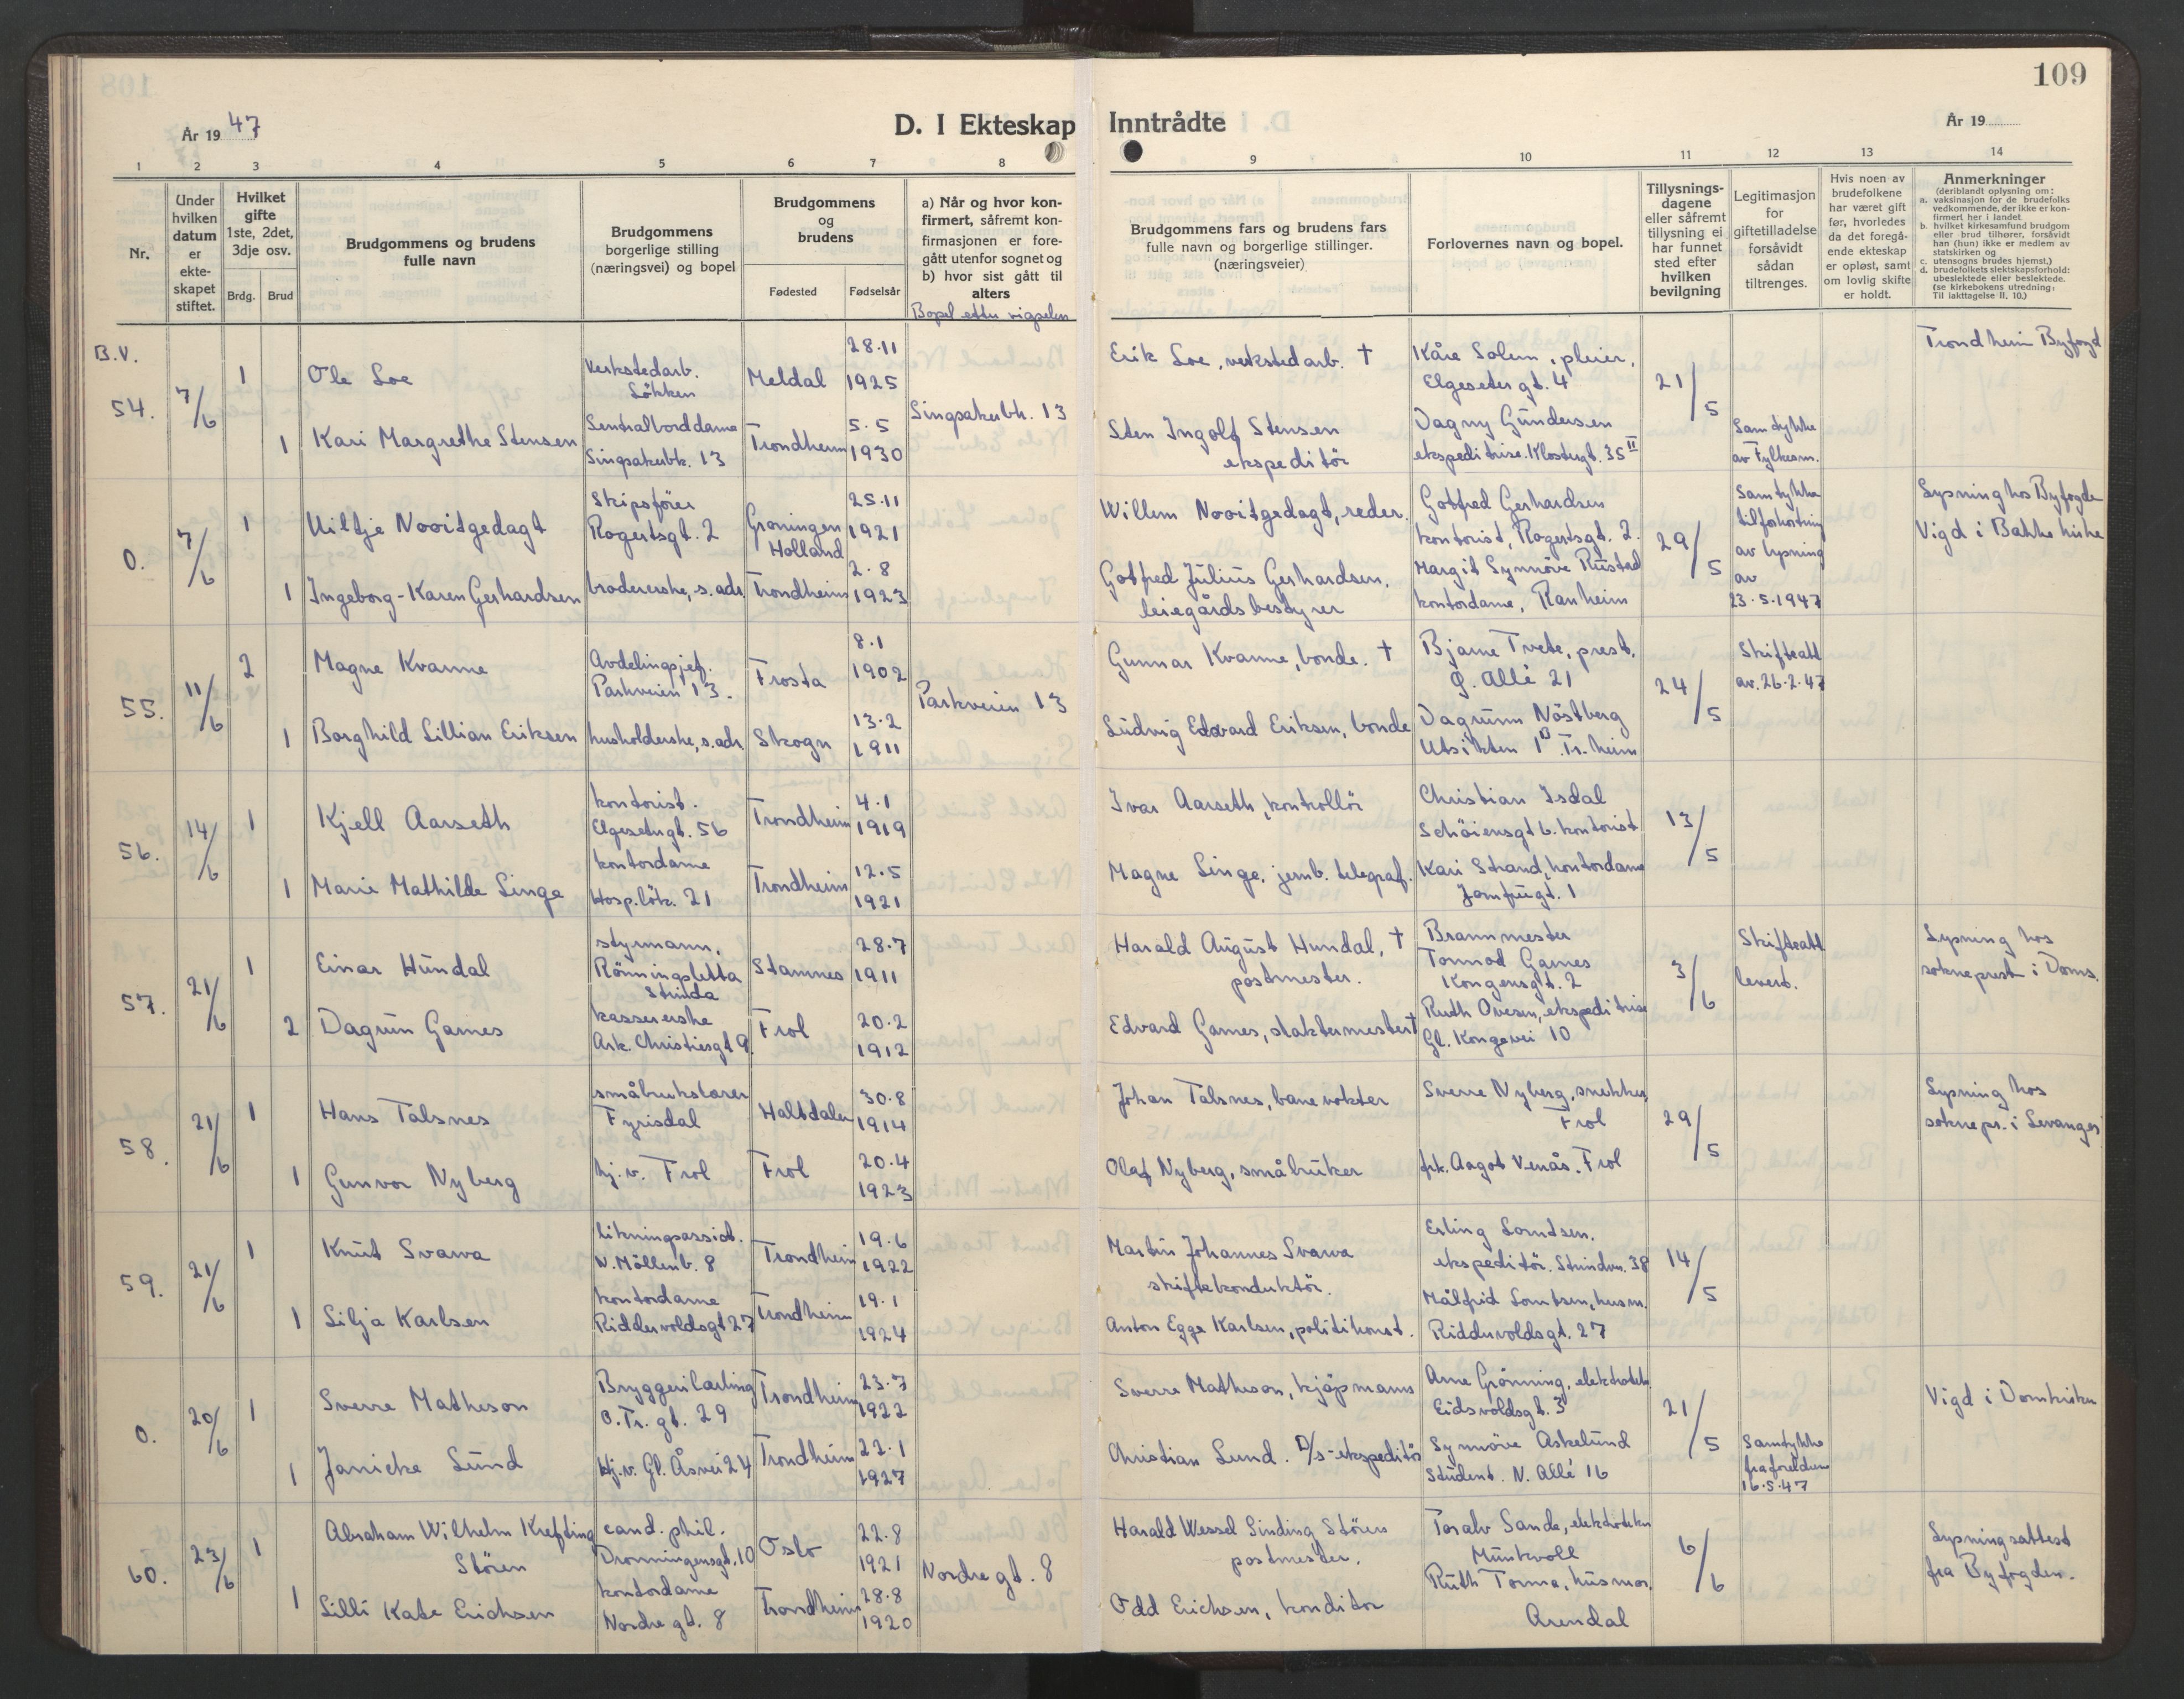 109
År 19 47
D. I Ekteskap
Inntrådte
År 19
1 2 3 4 5 6 7 8
9 10 11 12 13 14
Nr.
Under hvilken datum er ekte- skapet stiftet.
Hvilket gifte 1ste, 2det, 3dje osv.
Brdg. Brud
Brudgommens og brudens fulle navn
Brudgommens borgerlige stilling (næringsvei) og bopel
Brudgommens og brudens
Fødested Fødselsår
a) Når og hvor kon- firmert, såfremt kon- firmasjonen er fore- gått utenfor sognet og b) hvor sist gått til alters
Bopel etter vigselen
Brudgommens fars og brudens fars fulle navn og borgerlige stillinger. (næringsveier)
Forlovernes navn og bopel.
Tillysnings- dagene eller såfremt tillysning ei har funnet sted efter hvilken bevilgning
Legitimasjon for giftetilladelse forsåvidt sådan tiltrenges.
Hvis noen av brudefolkene har været gift før, hvorledes da det foregå- ende ekteskap er opløst, samt om lovlig skifte er holdt.
Anmerkninger
(deriblandt oplysning om:
a. vaksinasjon for de brudefolks vedkommende, der ikke er kon- firmert her i landet
b. hvilket kirkesamfund brudgom eller brud tilhører, forsåvidt han (hun) ikke er medlem av statskirken og
c. utensogns brudes hjemst.)
d. brudefolkets slektskapsforhold: ubeslektede eller beslektede. (se kirkebokens utredning: Til iakttagelse II, 10.)
B.V.
54. 7/6 1 Ole Loe
Verkstedarb. Løkken
Meldal 28.11 1925
Erik Loe, verkstedarb. †
Kåre Solem, pleier, Elgeseter gt. 4
21/5
Trondheim Byfogd
1 Kari Margrethe Stensen
Sentralborddame Singsakerbk. 13
Trondheim 5.5 1930
Singsakerbk. 13
Sten Ingolf Stensen ekspeditör
Dagny Gundersen ekspeditrise. Klostergt. 35 II
Samtykke av Fylkesm.
0. 7/6 1 Uiltje Nooitgedagt
Skipsförer Rogertsgt. 2
Groningen Holland 25.11 1921
Willem Nooitgedagt, reder.
Gotfred Gerhardsen kontorist, Rogertsgt. 2.
29/5
Samtykke til forkortning av lysning av 23.5.1947
Lysning hos Byfogde
Vigd i Bakke kirke
1 Ingeborg-Karen Gerhardsen
brodererske, s. adr.
Trondheim 2.8 1923
Gotfred Julius Gerhardsen, leiegårdsbestyrer
Margit Synnöve Rustad kontordame, Ranheim
55. 11/6 2 Magne Kvamme
Avdelingsjef. Parkveien 13.
Frosta 8.1 1902
Parkveien 13
Gunnar Kvamme, bonde. †
Bjarne Tvete, prest, Ø. Allé 21
24/5
Skifteatt av. 26.2.47
1 Borghild Lillian Eriksen
husholderske, s. adr.
Skogn 13.2 1911
Ludvig Edvard Eriksen, bonde
Dagrunn Nöstberg Utsikten 1 B Tr.heim
56. 14/6 1 Kjell Aarseth
kontorist. Elgesetergt. 56
Trondheim 4.1 1919
Ivar Aarseth, kontrollör
Christian Isdal Schöiensgt 6. kontorist
13/5
1 Marie Mathilde Singe
kontordame Hosp.lök. 21
Trondheim 12.5 1921
Magne Singe, jernb. telegraf.
Kari Strand, kontordame Jomfrugt. 1
57. 21/6 1 Einar Hundal
styrmann. Rönningsletta Strinda
Stamnes 28.7 1911
Harald August Hundal, † postmester.
Brannmester Tormod Garnes Kongensgt. 2
3/6
Skifteatt levert.
Lysning hos sokneprest i Doms.
2 Dagrun Garnes
kassererske Ark. Christiesgt 9.
Frol 20.2 1912
Edvard Garnes, slaktermester †
Ruth Ovesen, ekspeditrise Gl. Kongevei 10
58. 21/6 1 Hans Talsnes
småbrukslærer Fyrisdal
Haltdalen 30.8 1914
Johan Talsnes, banevokter
Sverre Nyberg, snekker, Frol
29/5
Lysning hos soknepr. i Levanger
1 Gunvor Nyberg
hj.v. Frol
Frol 20.4 1923
Olaf Nyberg, småbruker
frk. Aagot Venås. Frol
59. 21/6 1 Knut Svarva
likningsassist. N. Möllenb. 8
Trondheim 19.6 1922
Martin Johannes Svarva skiftekonduktör.
Erling Lorntsen, ekspeditör. Strindvn. 38
14/5
1 Silja Karlsen
kontordame Riddervoldsgt 27
Trondheim 19.1 1924
Anton Egge Karlsen, politikonst.
Målfrid Lorntsen, husm. Riddervoldsgt. 27
0. 20/6 1 Sverre Matheson
Bryggerilærling O. Tr. gt. 29
Trondheim 23.7 1922
Sverre Matheson, kjøpmann
Arne Grønning, elektrotekn. Eidsvoldsgt. 3
21/5
Vigd i Domkirken
1 Janicke Lund
Hj.v. Gl. Åsvei 24
Trondheim 22.1 1927
Christian Lund. D/s-ekspeditör
Synnöve Askelund Student. N. Allé 16
Samtykke fra foreldrene 16.5.47
60. 23/6 1 Abraham Wilhelm Krefting Stören
cand. phil. Dronningensgt. 10
Oslo 22.8 1921
Nordre gt. 8
Harald Wessel Sinding Stören postmester.
Toralv Sande, elektrotekn Munkvoll
6/6
Lysningsattest fra Byfogden.
1 Lilli Kate Erichsen
kontordame Nordre gt. 8
Trondheim 28.8 1920
Odd Erichsen, konditor
Ruth Torma, husmor, Arendal